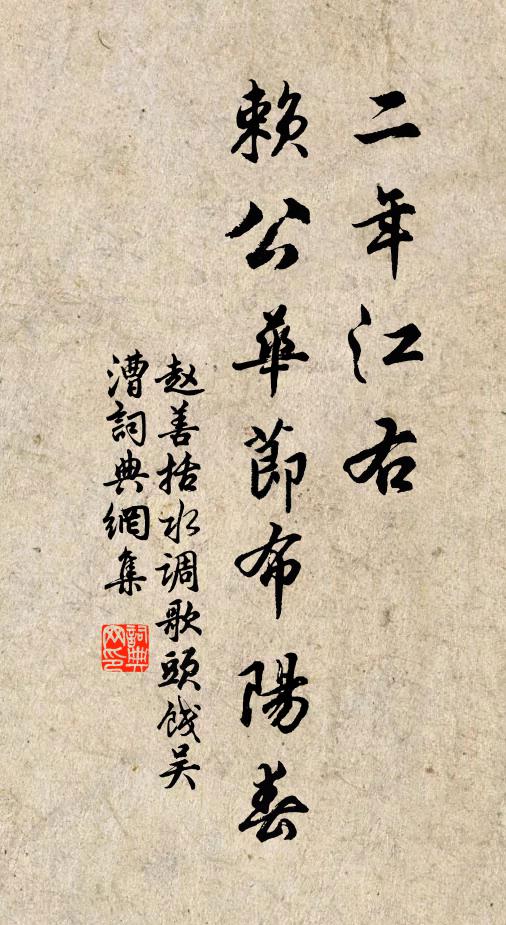 二年江右
賴公華節布陽春
赵善括水调歌頭餞吴
漕詞典網集
詞典
网印